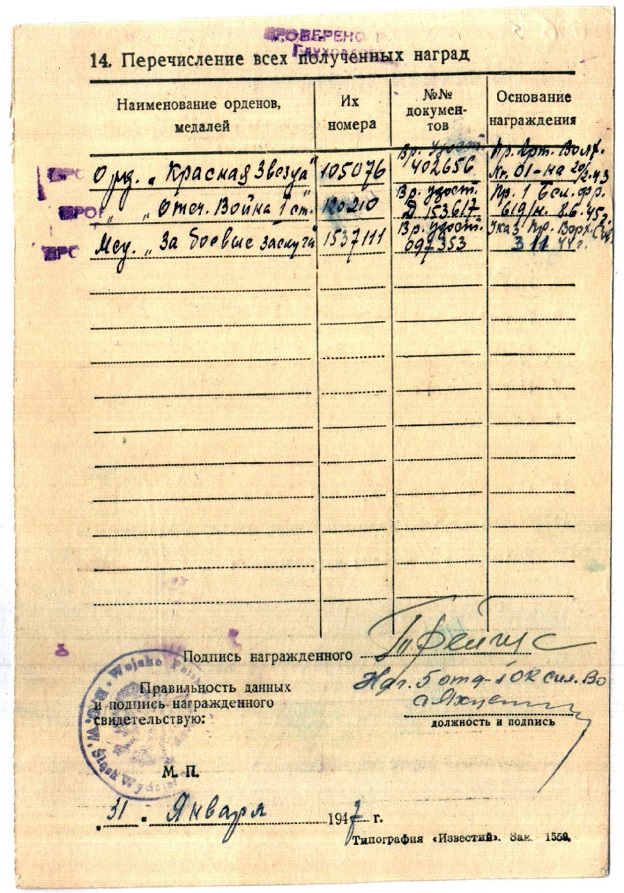 ПРОВЕРЕНО
14. Перечисление всех полученных наград
Наименование орденов, медалей
Их номера
№№ докумен-тов
Основание награждения
Орд. „Красная Звезда" 105076 Вр. удост. 402656 Пр. Арт. Волх. №. 01-НО
„ „Отеч. Война 1 ст. 120210 Вр. удост. Д 153617 Пр. 1 Бел. фр. 619/н. 8.6.45г.
Мед. „За боевые заслуги" 1537111 Вр. удост. 097353 Указ Пр. Верх. Сов. 3 11 44 г.
Подпись награжденного
Правильность данных
и подпись награжденного
свидетельствую:
Нач. 5 отд-
должность и подпись
Wojsko
М. П.
„31" Января 1947 г.
Типография «Известий». Зак. 1559.